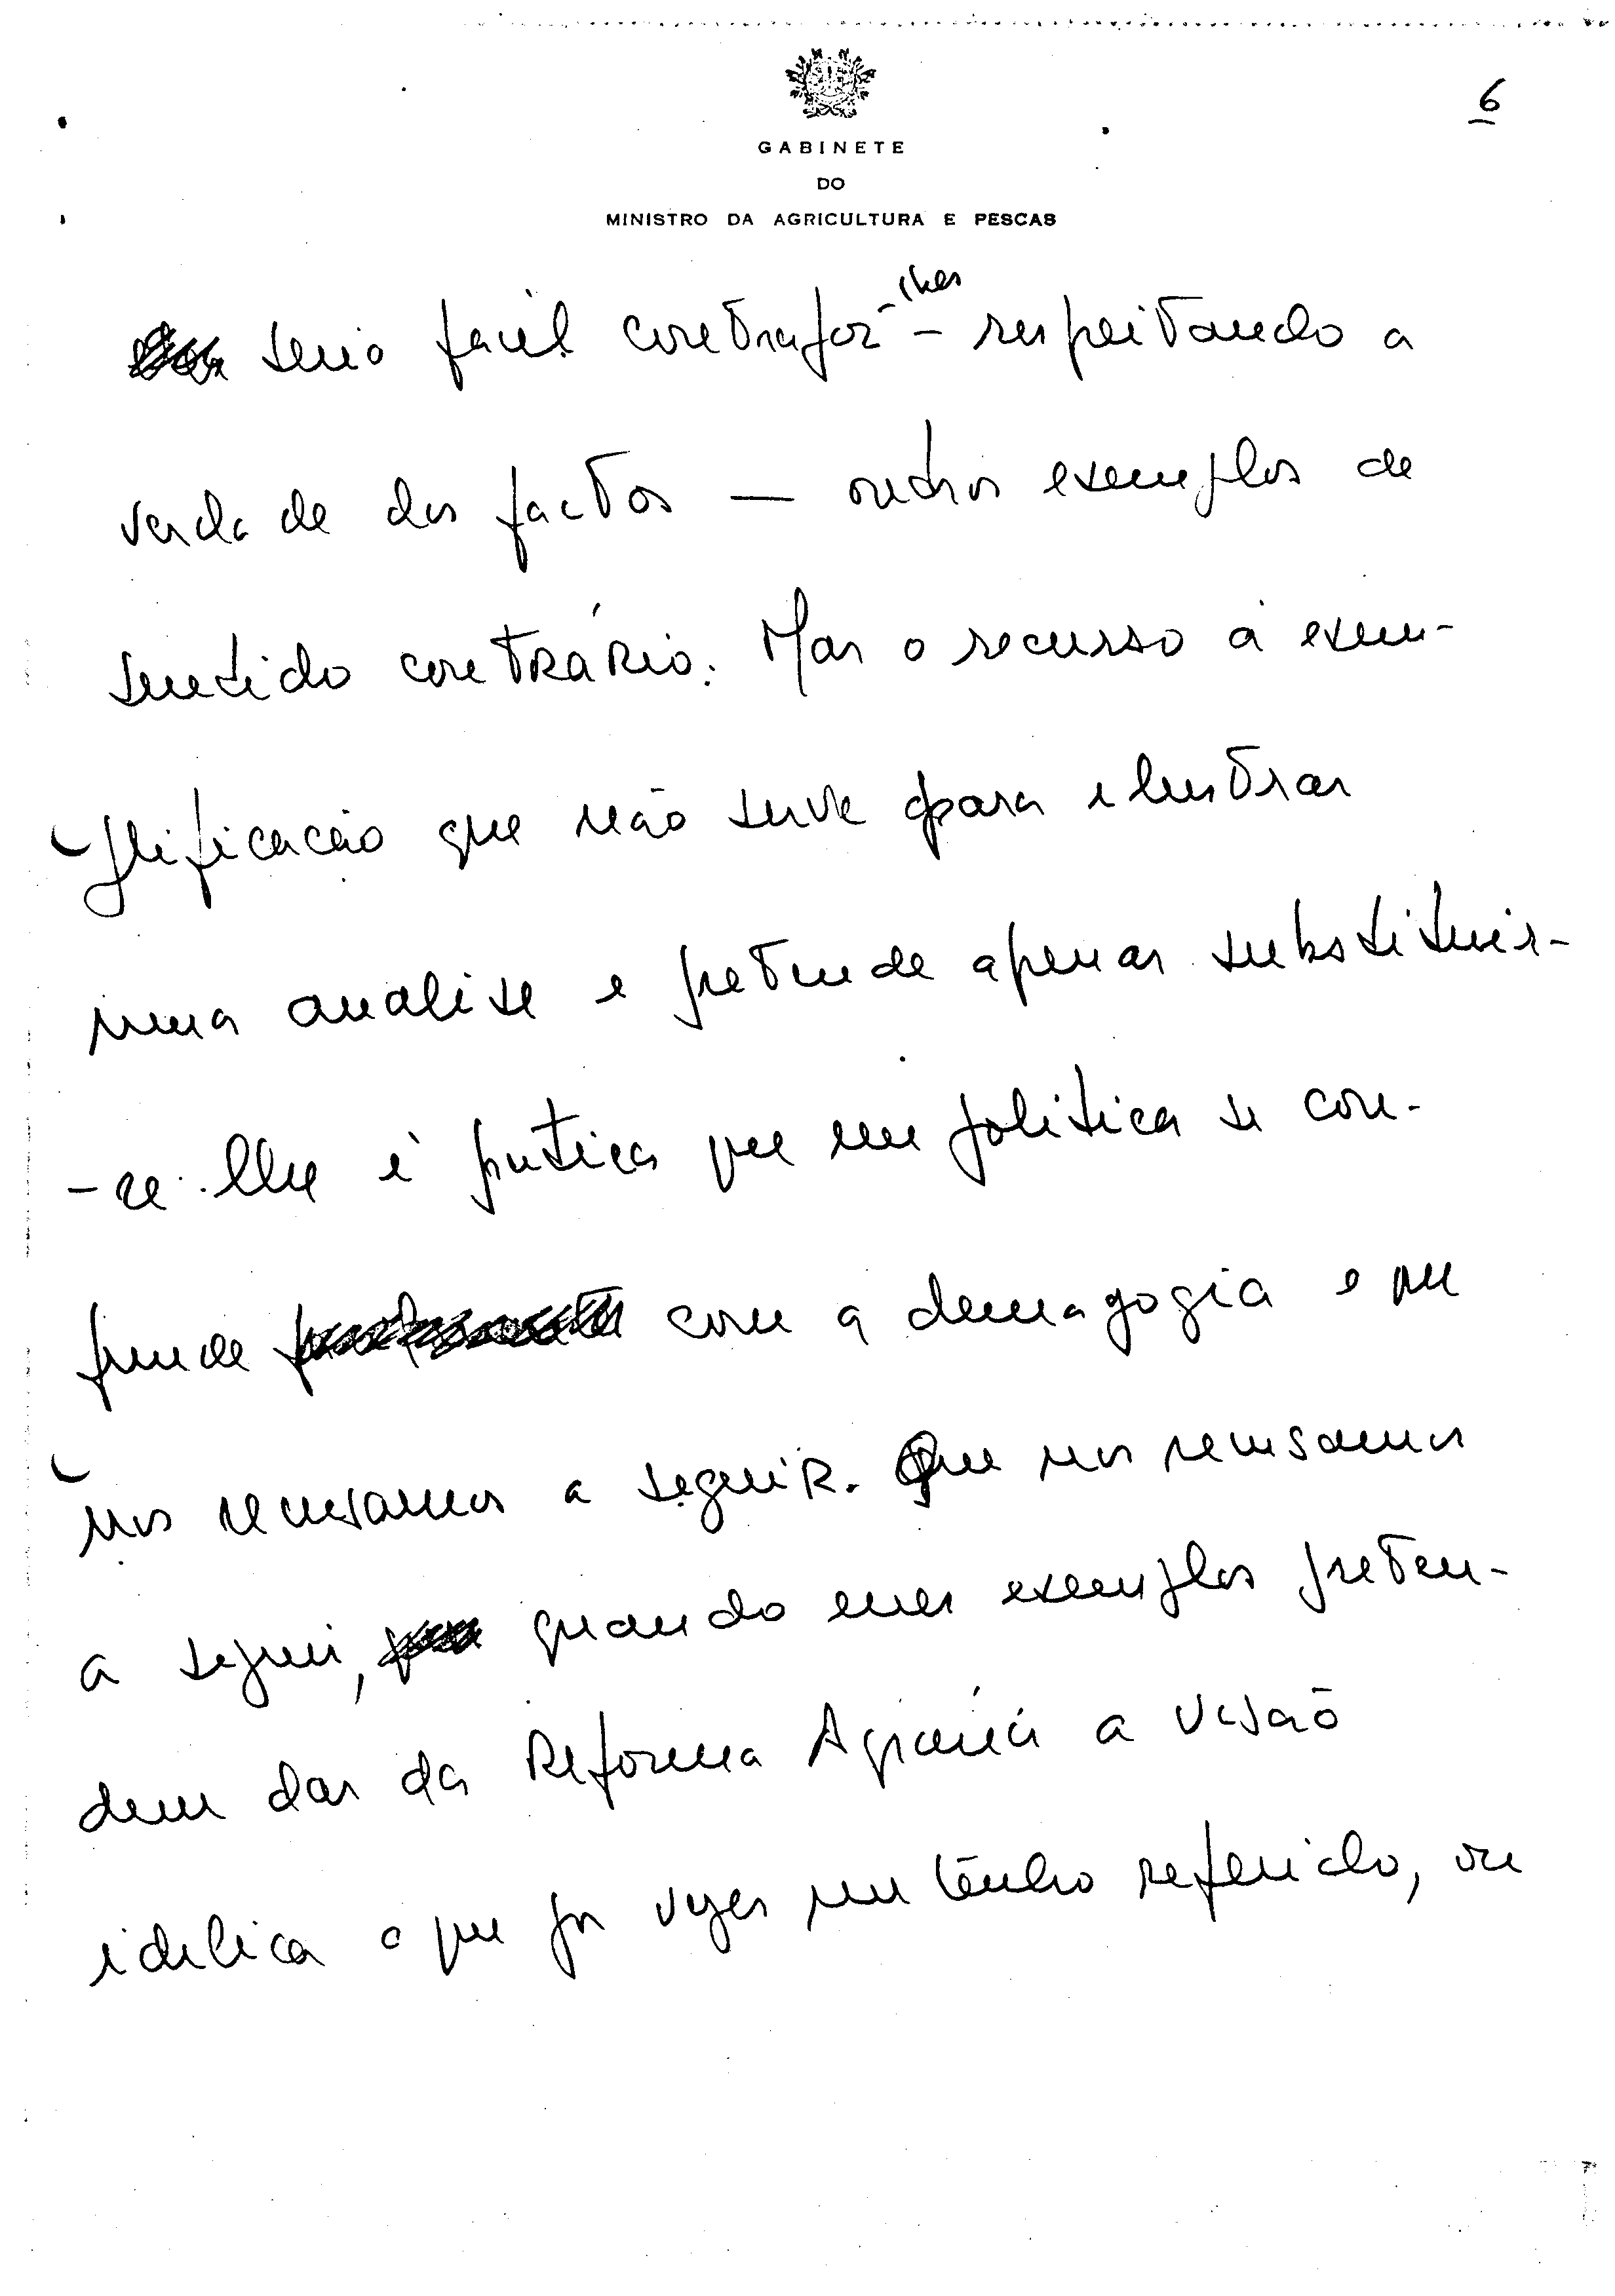 6
GABINETE
DO
MINISTRO DA AGRICULTURA E PESCAS
seria fácil contrapor-lhes - respeitando a
verdade dos factos — outros exemplos de
sentido contrário. Mas o recurso à exem-
plificação que não serve para ilustrar
uma analise e pretende apenas substituir-
-se-lhe é prática que em politica se con-
funde com a demagogia e que
nos recusamos a seguir. Que nos recusamos
a seguir, quando esses exemplos preten-
dem dar da Reforma Agrária a visão
idilica a que por vezes me tenho referido, ou